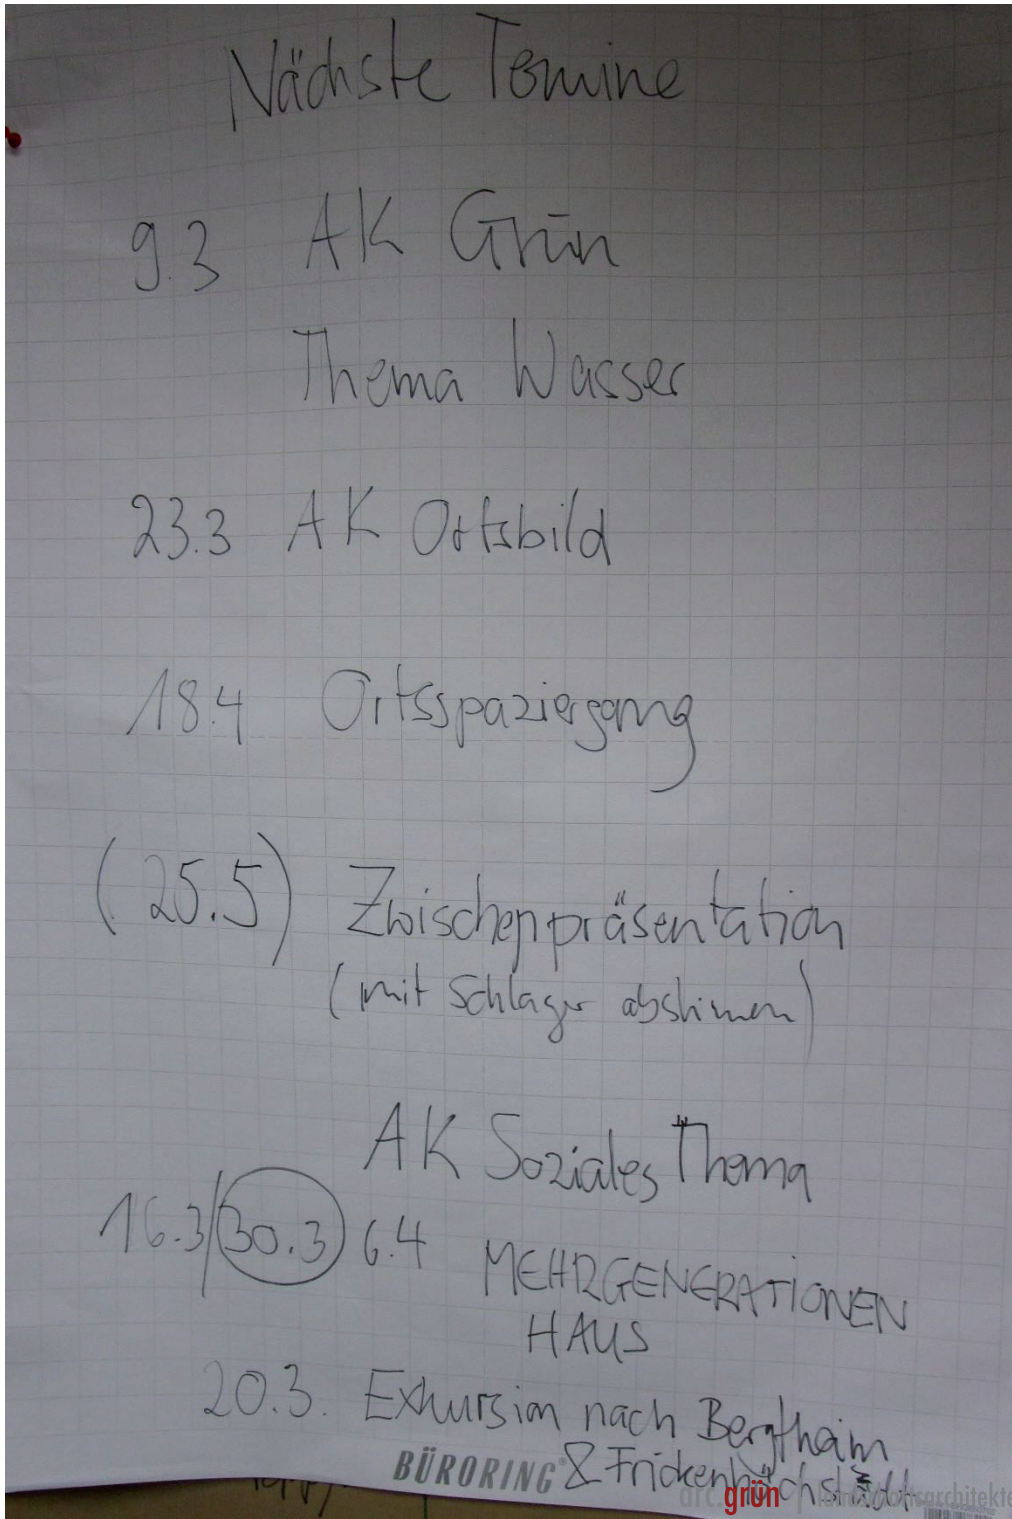 Nächste Termine
9.3 AK Grün
Thema Wasser
23.3 AK Ortsbild
18.4 Ortsspaziergang
(25.5) Zwischenpräsentation
(mit Schlager abstimen)
AK Soziales Thema
16.3/30.3 6.4 MEHRGENERATIONEN
HAUS
20.3. Exkursion nach Bergtheim
& Frickenhöchstädt
BÜRORING
arc.grün | landschaftsarchitekte